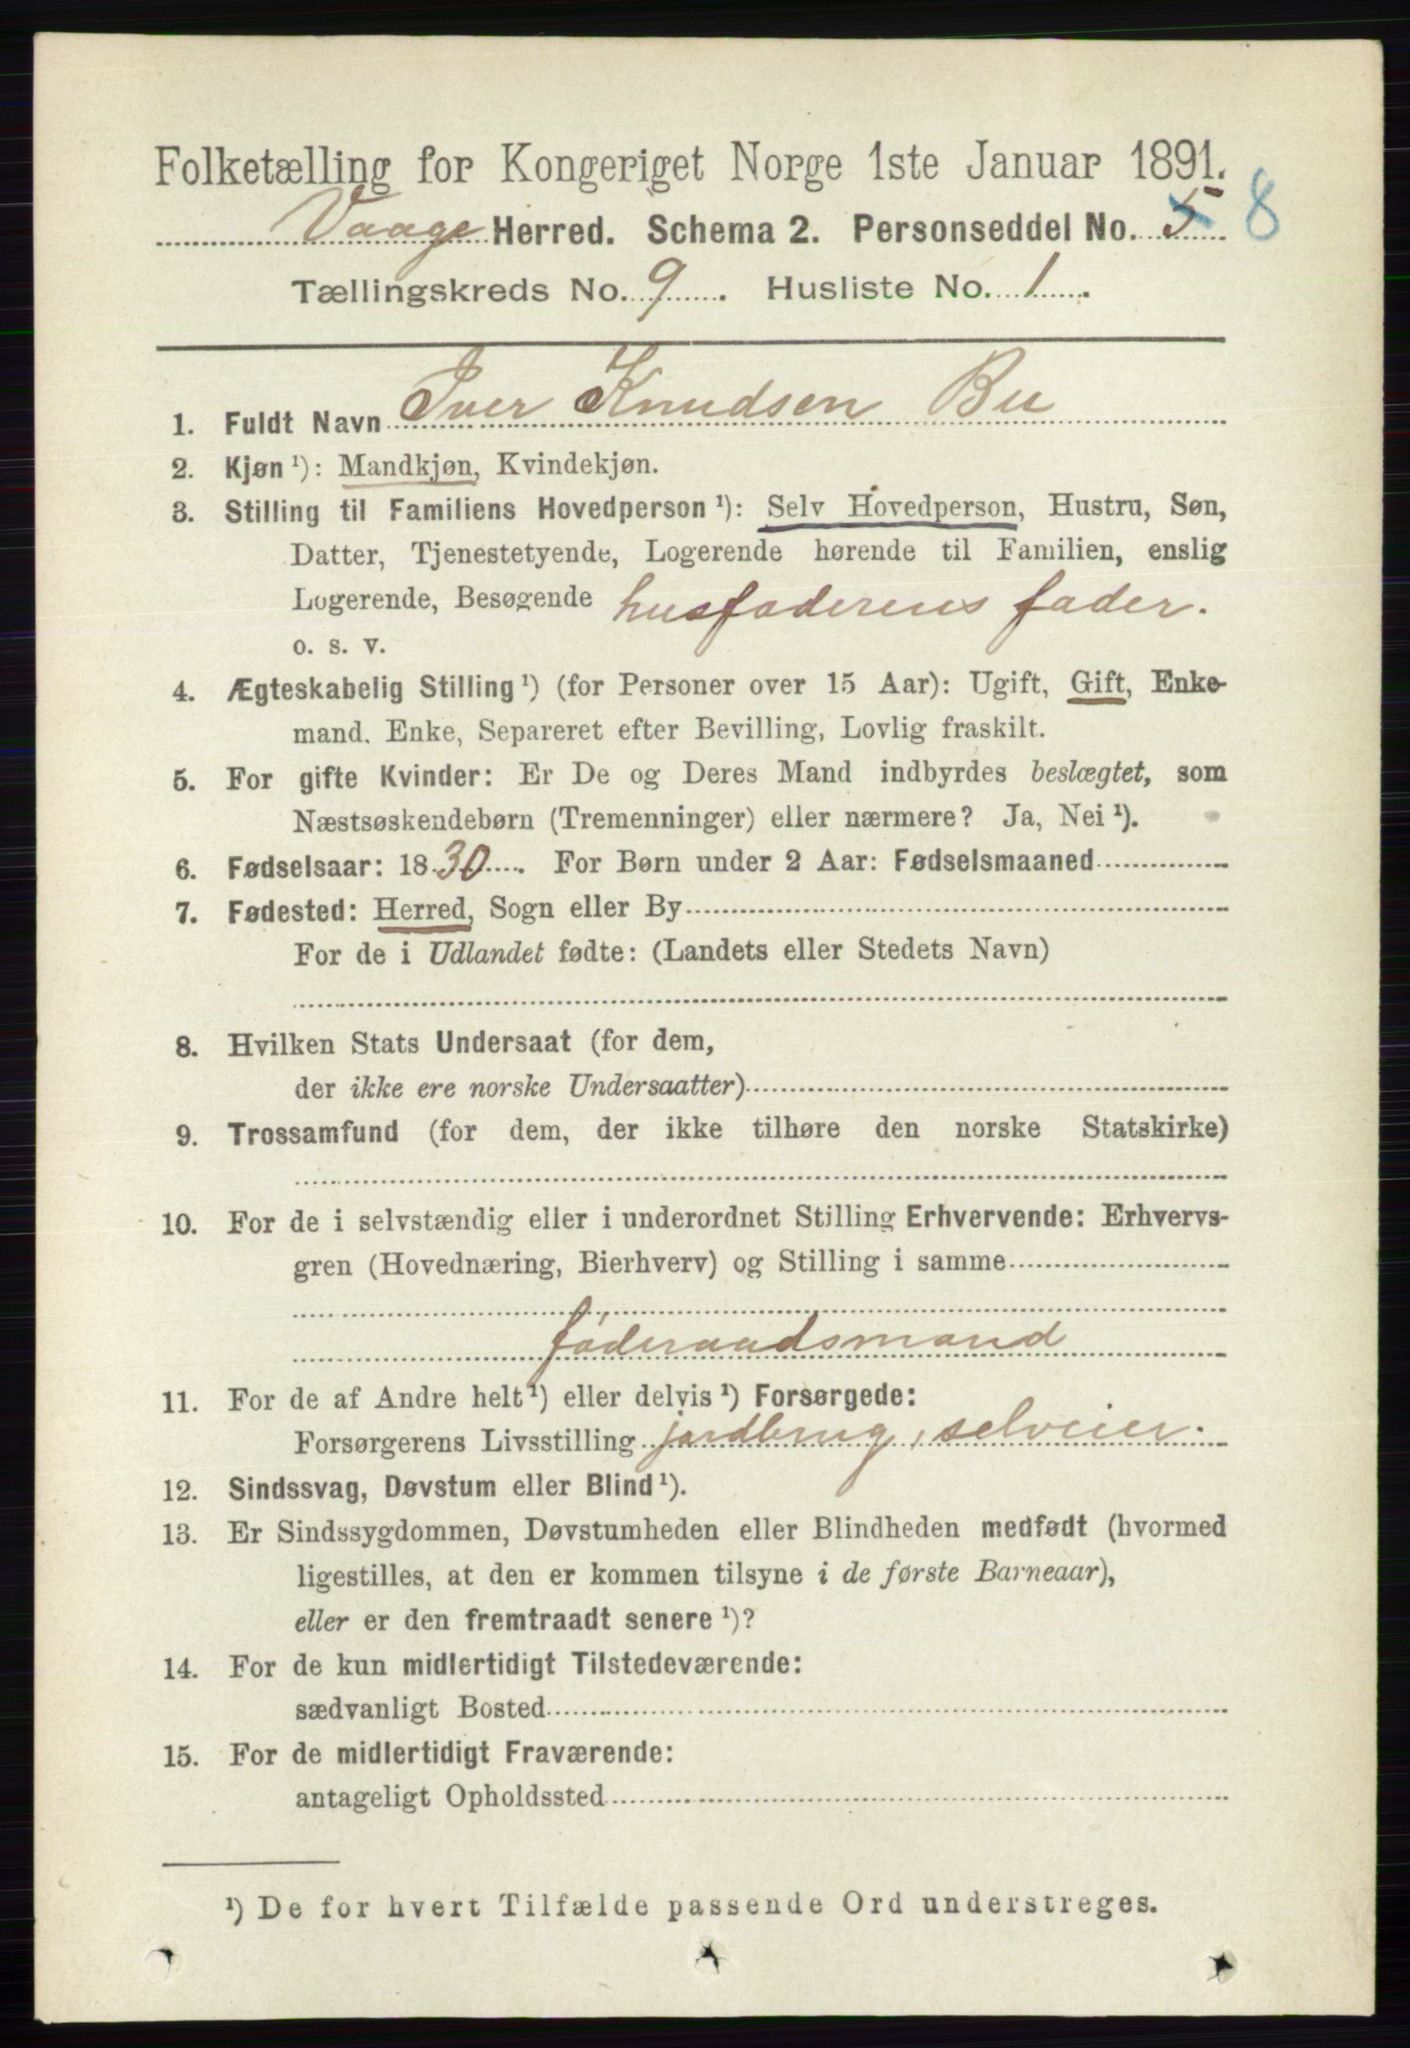 Folketælling for Kongeriget Norge 1ste Januar 1891.
Vaage Herred. Schema 2. Personseddel No. 5 8
Tællingskreds No. 9. Husliste No. 1.
1. Fuldt Navn Iver Knudsen Bu
2. Kjøn ¹): Mandkjøn, Kvindekjøn.
3. Stilling til Familiens Hovedperson ¹): Selv Hovedperson, Hustru, Søn,
Datter, Tjenestetyende, Logerende hørende til Familien, enslig
Logerende, Besøgende husfaderens fader.
o. s. v.
4. Ægteskabelig Stilling ¹) (for Personer over 15 Aar): Ugift, Gift, Enke-
mand. Enke, Separeret efter Bevilling, Lovlig fraskilt.
5. For gifte Kvinder: Er De og Deres Mand indbyrdes beslægtet, som
Næstsøskendebørn (Tremenninger) eller nærmere? Ja, Nei ¹).
6. Fødselsaar: 1830. For Børn under 2 Aar: Fødselsmaaned
7. Fødested: Herred, Sogn eller By
For de i Udlandet fødte: (Landets eller Stedets Navn)
8. Hvilken Stats Undersaat (for dem,
der ikke ere norske Undersaatter)
9. Trossamfund (for dem, der ikke tilhøre den norske Statskirke)
10. For de i selvstændig eller i underordnet Stilling Erhvervende: Erhvervs-
gren (Hovednæring, Bierhverv) og Stilling i samme
föderaadsmand
11. For de af Andre helt ¹) eller delvis ¹) Forsørgede:
Forsørgerens Livsstilling jordbrug, selveier.
12. Sindssvag, Døvstum eller Blind ¹).
13. Er Sindssygdommen, Døvstumheden eller Blindheden medfødt (hvormed
ligestilles, at den er kommen tilsyne i de første Barneaar),
eller er den fremtraadt senere ¹)?
14. For de kun midlertidigt Tilstedeværende:
sædvanligt Bosted
15. For de midlertidigt Fraværende:
antageligt Opholdssted
¹) De for hvert Tilfælde passende Ord understreges.